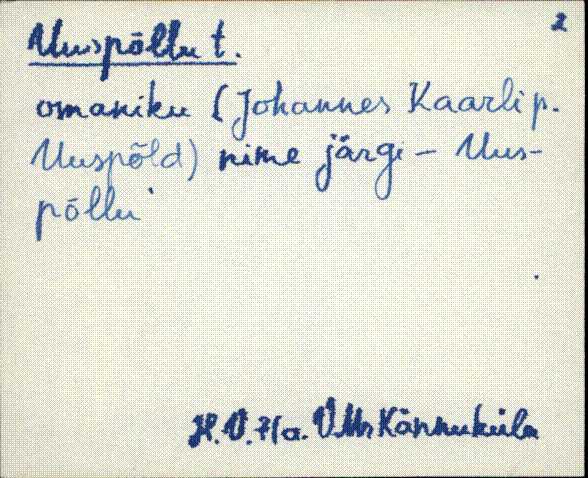 2
Uuspõllu t.
omaniku (Johannes Kaarli p.
Uuspõld) nime järgi – Uus-
põllu
H. V. 71a. VMr Kännuküla